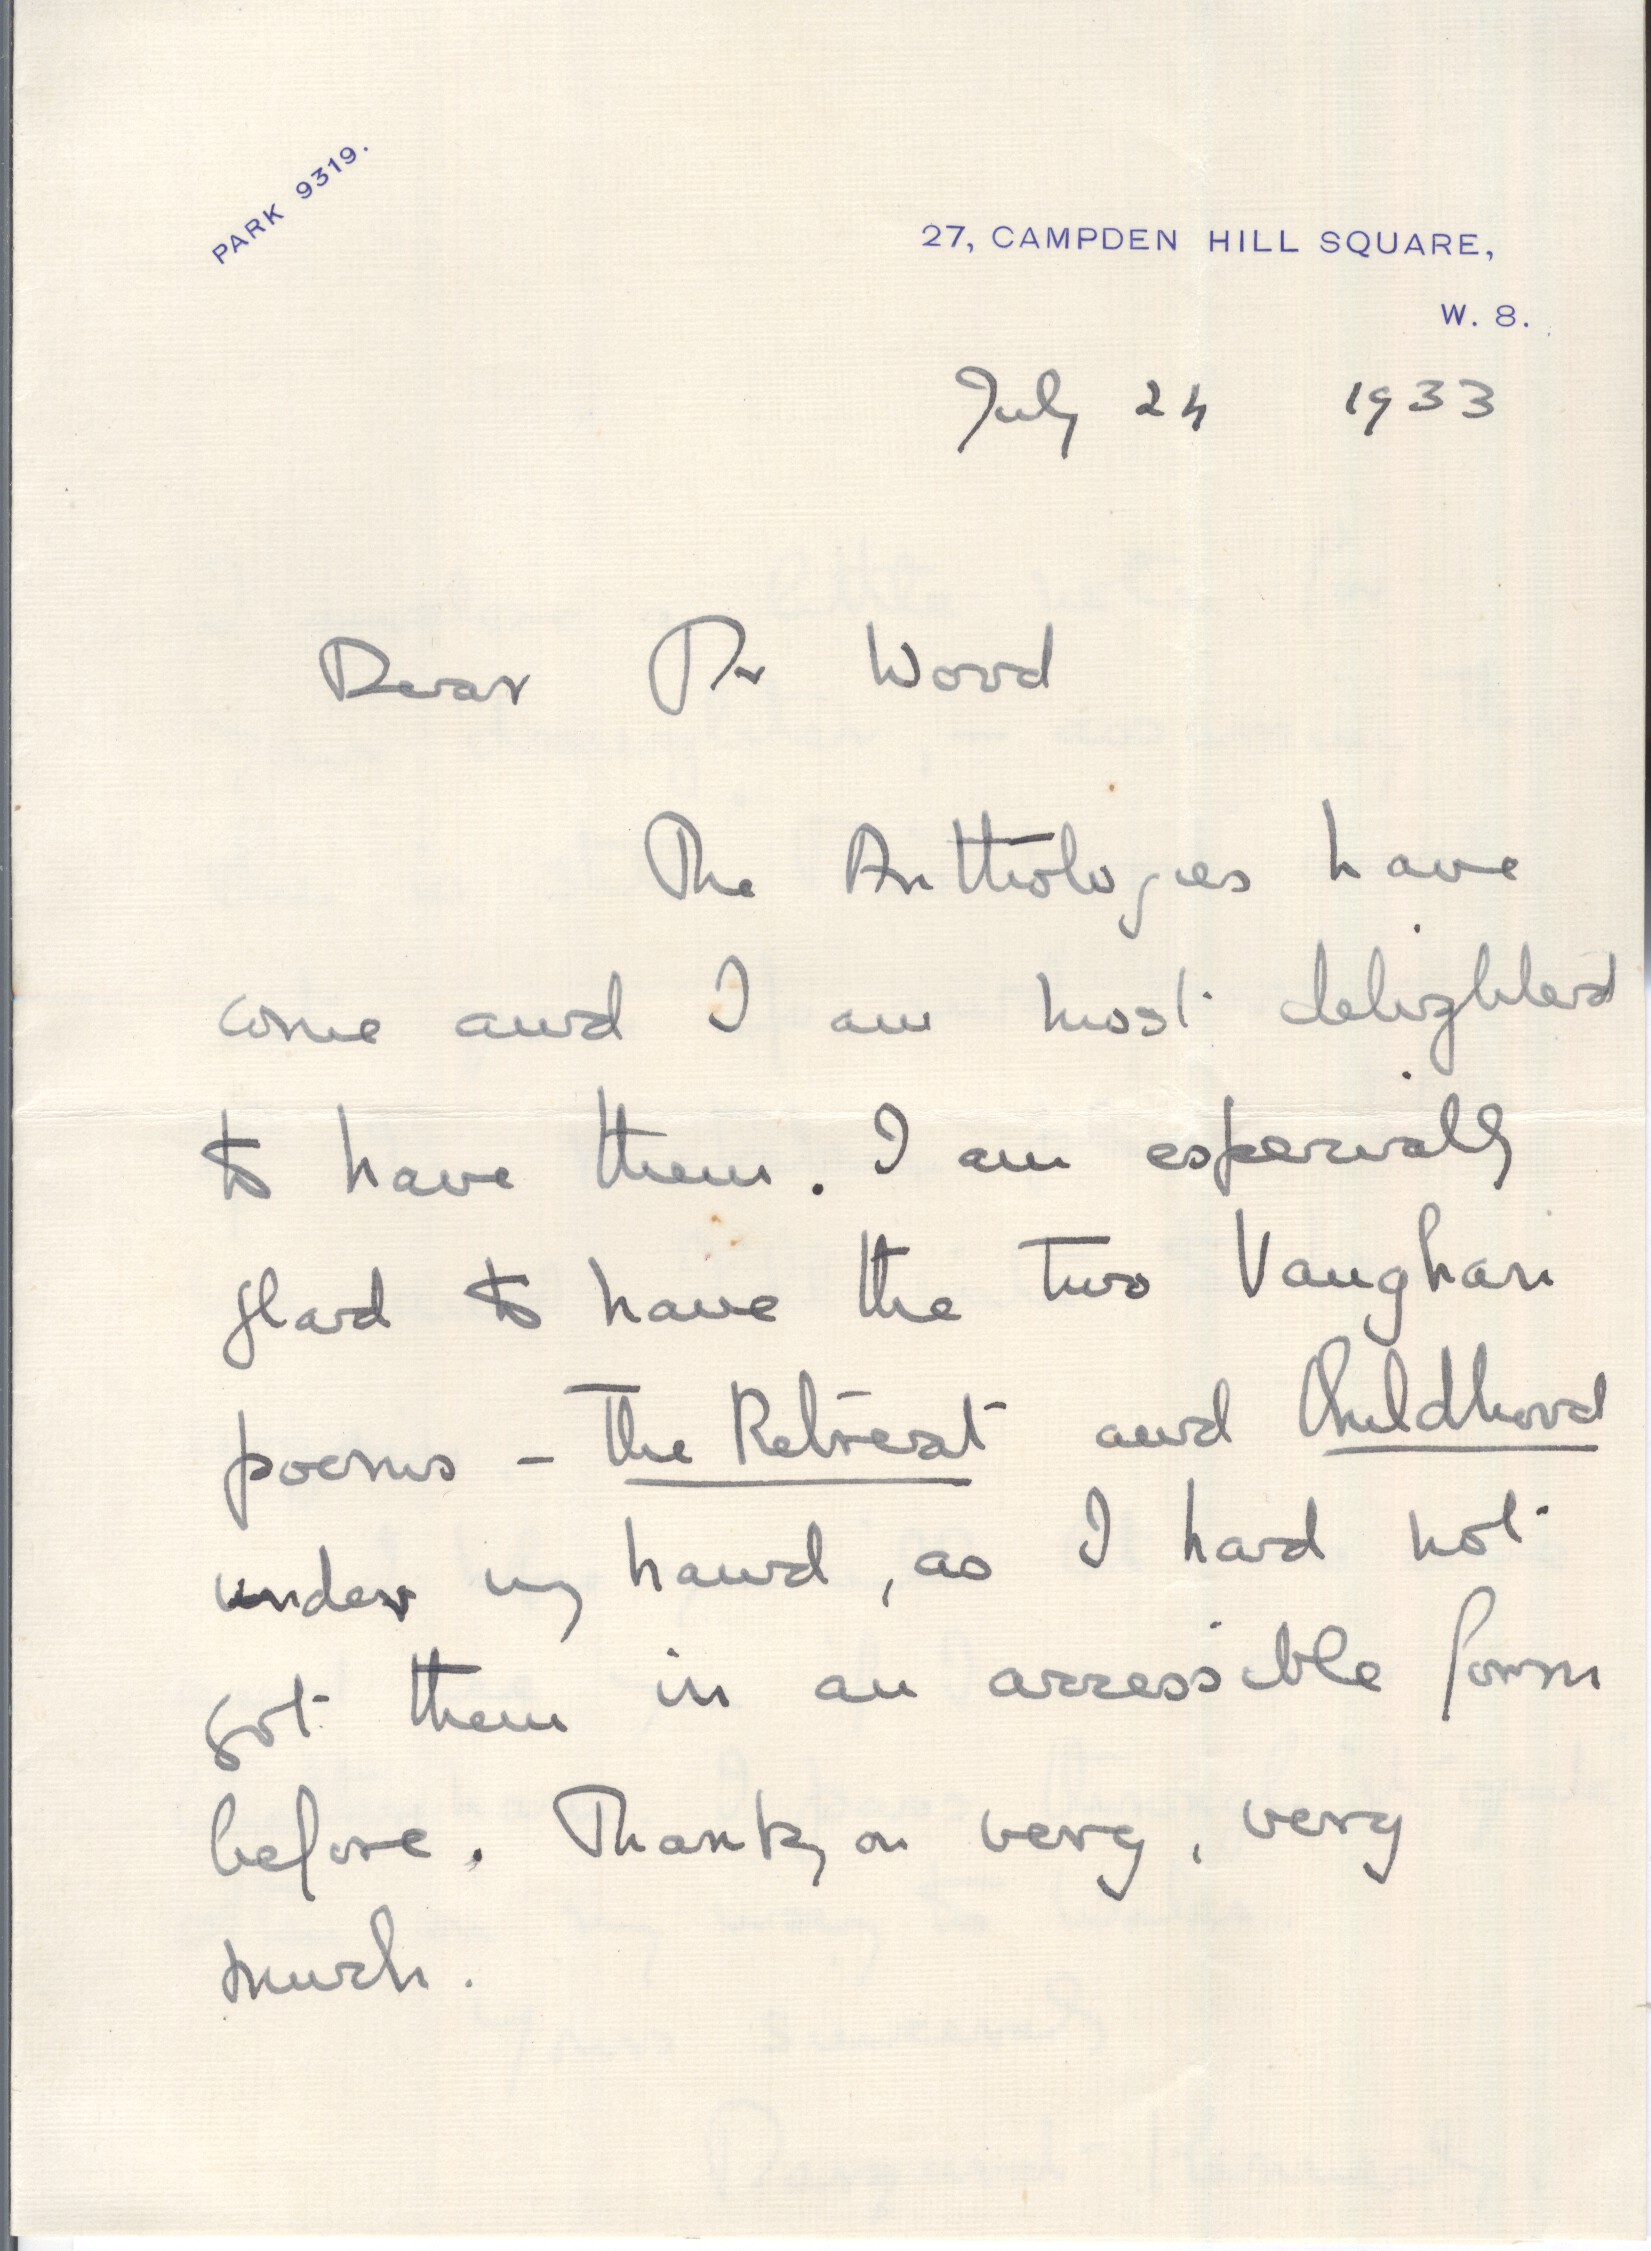 PARK 9319.
27, CAMPDEN HILL SQUARE,
W. 8.
July 24 1933
Dear Dr Wood
The Anthologies have
come and I am most delighted
to have them. I am especially
glad to have the two Vaughan
poems - The Retreat and Childhood
under my hand, as I had not
got them in an accessible form
before. Thank you very, very
much.